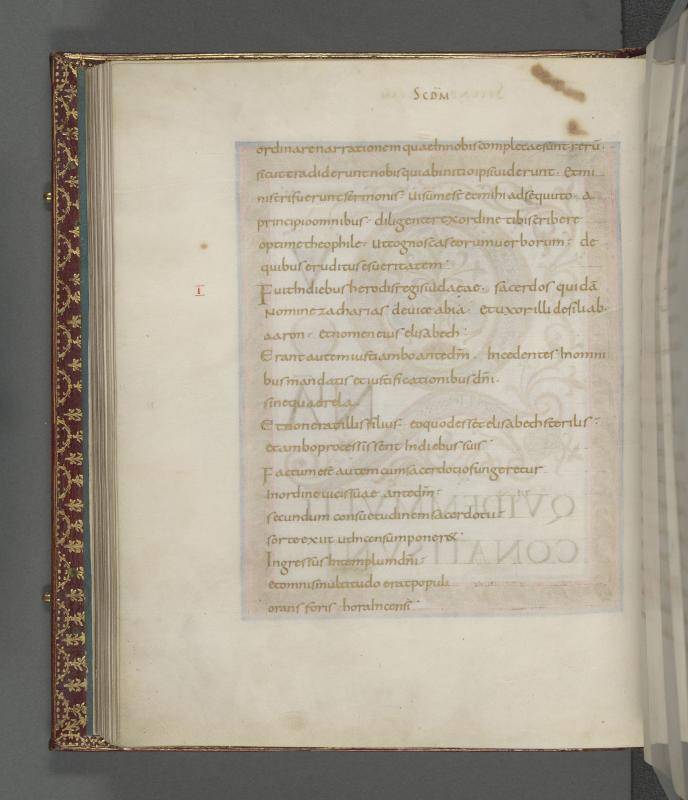 Scdm̄
ordinare narrationem quae in nobis completae sunt rerū ·
sicut tradiderunt nobis qui ab initio ipsi viderunt · et mi
nistri fuerunt sermonis · visum est et mihi adsequuto · a
principio omnibus · diligenter ex ordine tibi scribere
optime theophile · ut cognoscas eorum verborum · de
quibus eruditus es veritatem ·
ı̄
Fuit in diebus herodis regis iudaeae · sacerdos quidā
nomine zacharias de vice abia · et uxor illi de filiab ·
aaron · et nomen eius elisabeth ·
Erant autem iusti ambo ante dm̄ · incedentes in omni
bus mandatis et iustificationibus dn̄i ·
sine querela ·
Et non erat illis filius · eo quod esset elisabeth sterilis ·
et ambo processissent in diebus suis
Factum est autem cum sacerdotio fungeretur
in ordine vicis suae ante dm̄ ·
secundum consuetudinem sacerdotii ·
sorte exiit ut incensum poneret
Ingressus in templum dn̄i ·
et omnis multitudo erat populi
orans foris · hora incensi